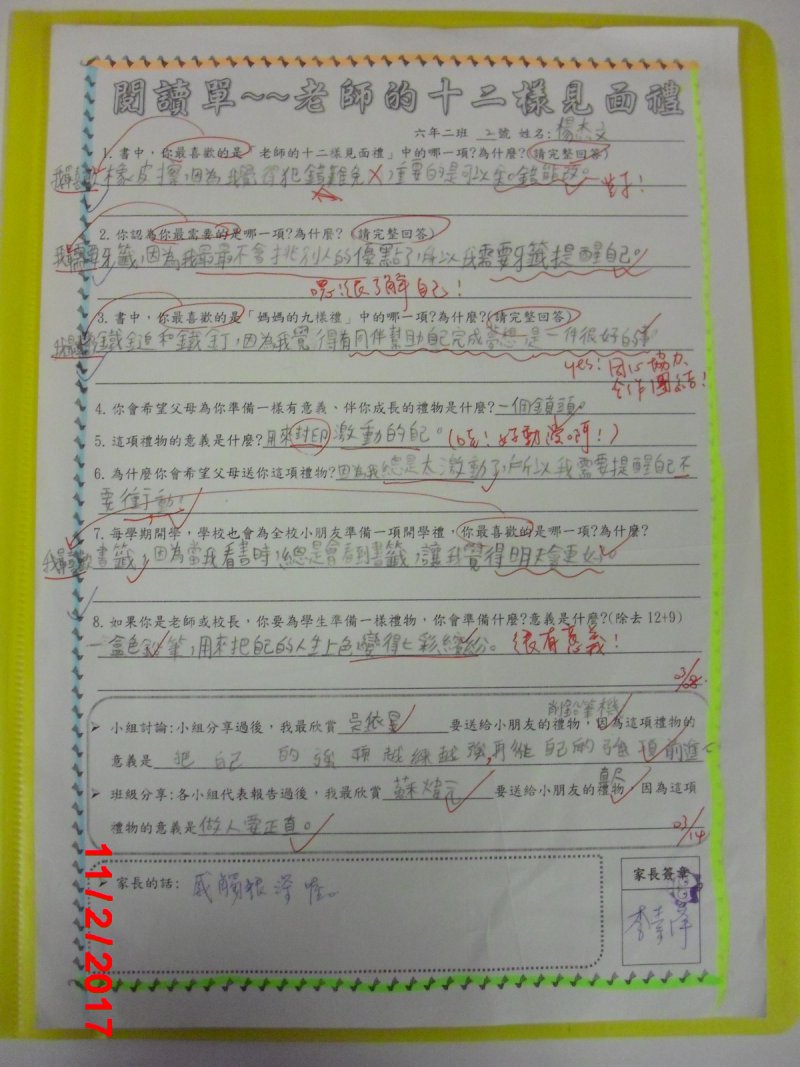 閱讀單~~老師的十二樣見面禮
六年二班 2號 姓名:楊杰文
1. 書中，你最喜歡的是「老師的十二樣見面禮」中的哪一項?為什麼?(請完整回答)
我最喜歡橡皮擦,因為我覺得犯錯難免,重要的是可以知錯能改。 對!
2. 你認為你最需要的是哪一項?為什麼? (請完整回答)
我需要牙籤,因為我最最不會挑別人的優點了,所以我需要牙籤提醒自己。
嗯!很了解自己!
3. 書中，你最喜歡的是「媽媽的九樣禮」中的哪一項?為什麼?(請完整回答)
鐵鎚和鐵釘,因為我覺得有同伴幫助自己完成夢想是一件很好的事
yes! 同心協力、
合作團結!
4. 你會希望父母為你準備一樣有意義、伴你成長的禮物是什麼?一個鎖頭。
5. 這項禮物的意義是什麼?用來封印激動的自己。(哇!好動漫啊!)
6. 為什麼你會希望父母送你這項禮物?因為我總是太激動了,所以我需要提醒自己不
要衝動!
7. 每學期開學，學校也會為全校小朋友準備一項開學禮，你最喜歡的是哪一項?為什麼?
我最喜歡書籤,因為當我看書時,總是會看到書籤,讓我覺得明天會更好。
8. 如果你是老師或校長，你要為學生準備一樣禮物，你會準備什麼?意義是什麼?(除去 12+9)
一盒色鉛筆,用來把自己的人生上色變得七彩繽紛。 很有意義!
03/08
削鉛筆機
小組討論:小組分享過後，我最欣賞 要送給小朋友的禮物，因為這項禮物的
意義是 把自己的強項越練越強,再從自己的強項前進
直尺
班級分享:各小組代表報告過後，我最欣賞 蘇煒元 要送給小朋友的禮物，因為這項
禮物的意義是做人要正直。
03/14
家長的話: 感觸很深喔。
家長簽章
11/2/2017